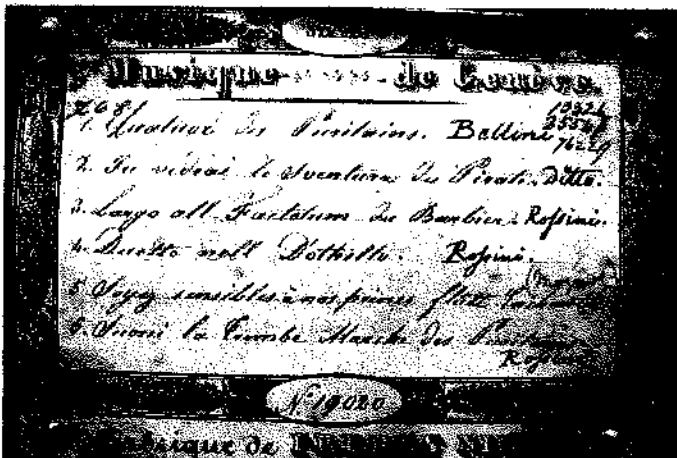 Musique de Genève.
13326
2681
1. Quatuor des Puritains. Bellini
76229
2. Tu vedrai le Sventura du Pirate. Ditto.
3. Largo all Factotum du Barbier. Rossini.
4. Duetto nell D'othello. Rossini.
5. Soyez sensibles à nos peines flute
6. Suoni la Trombe Marche des Puritains
Rossini
N° 19020
Musique de